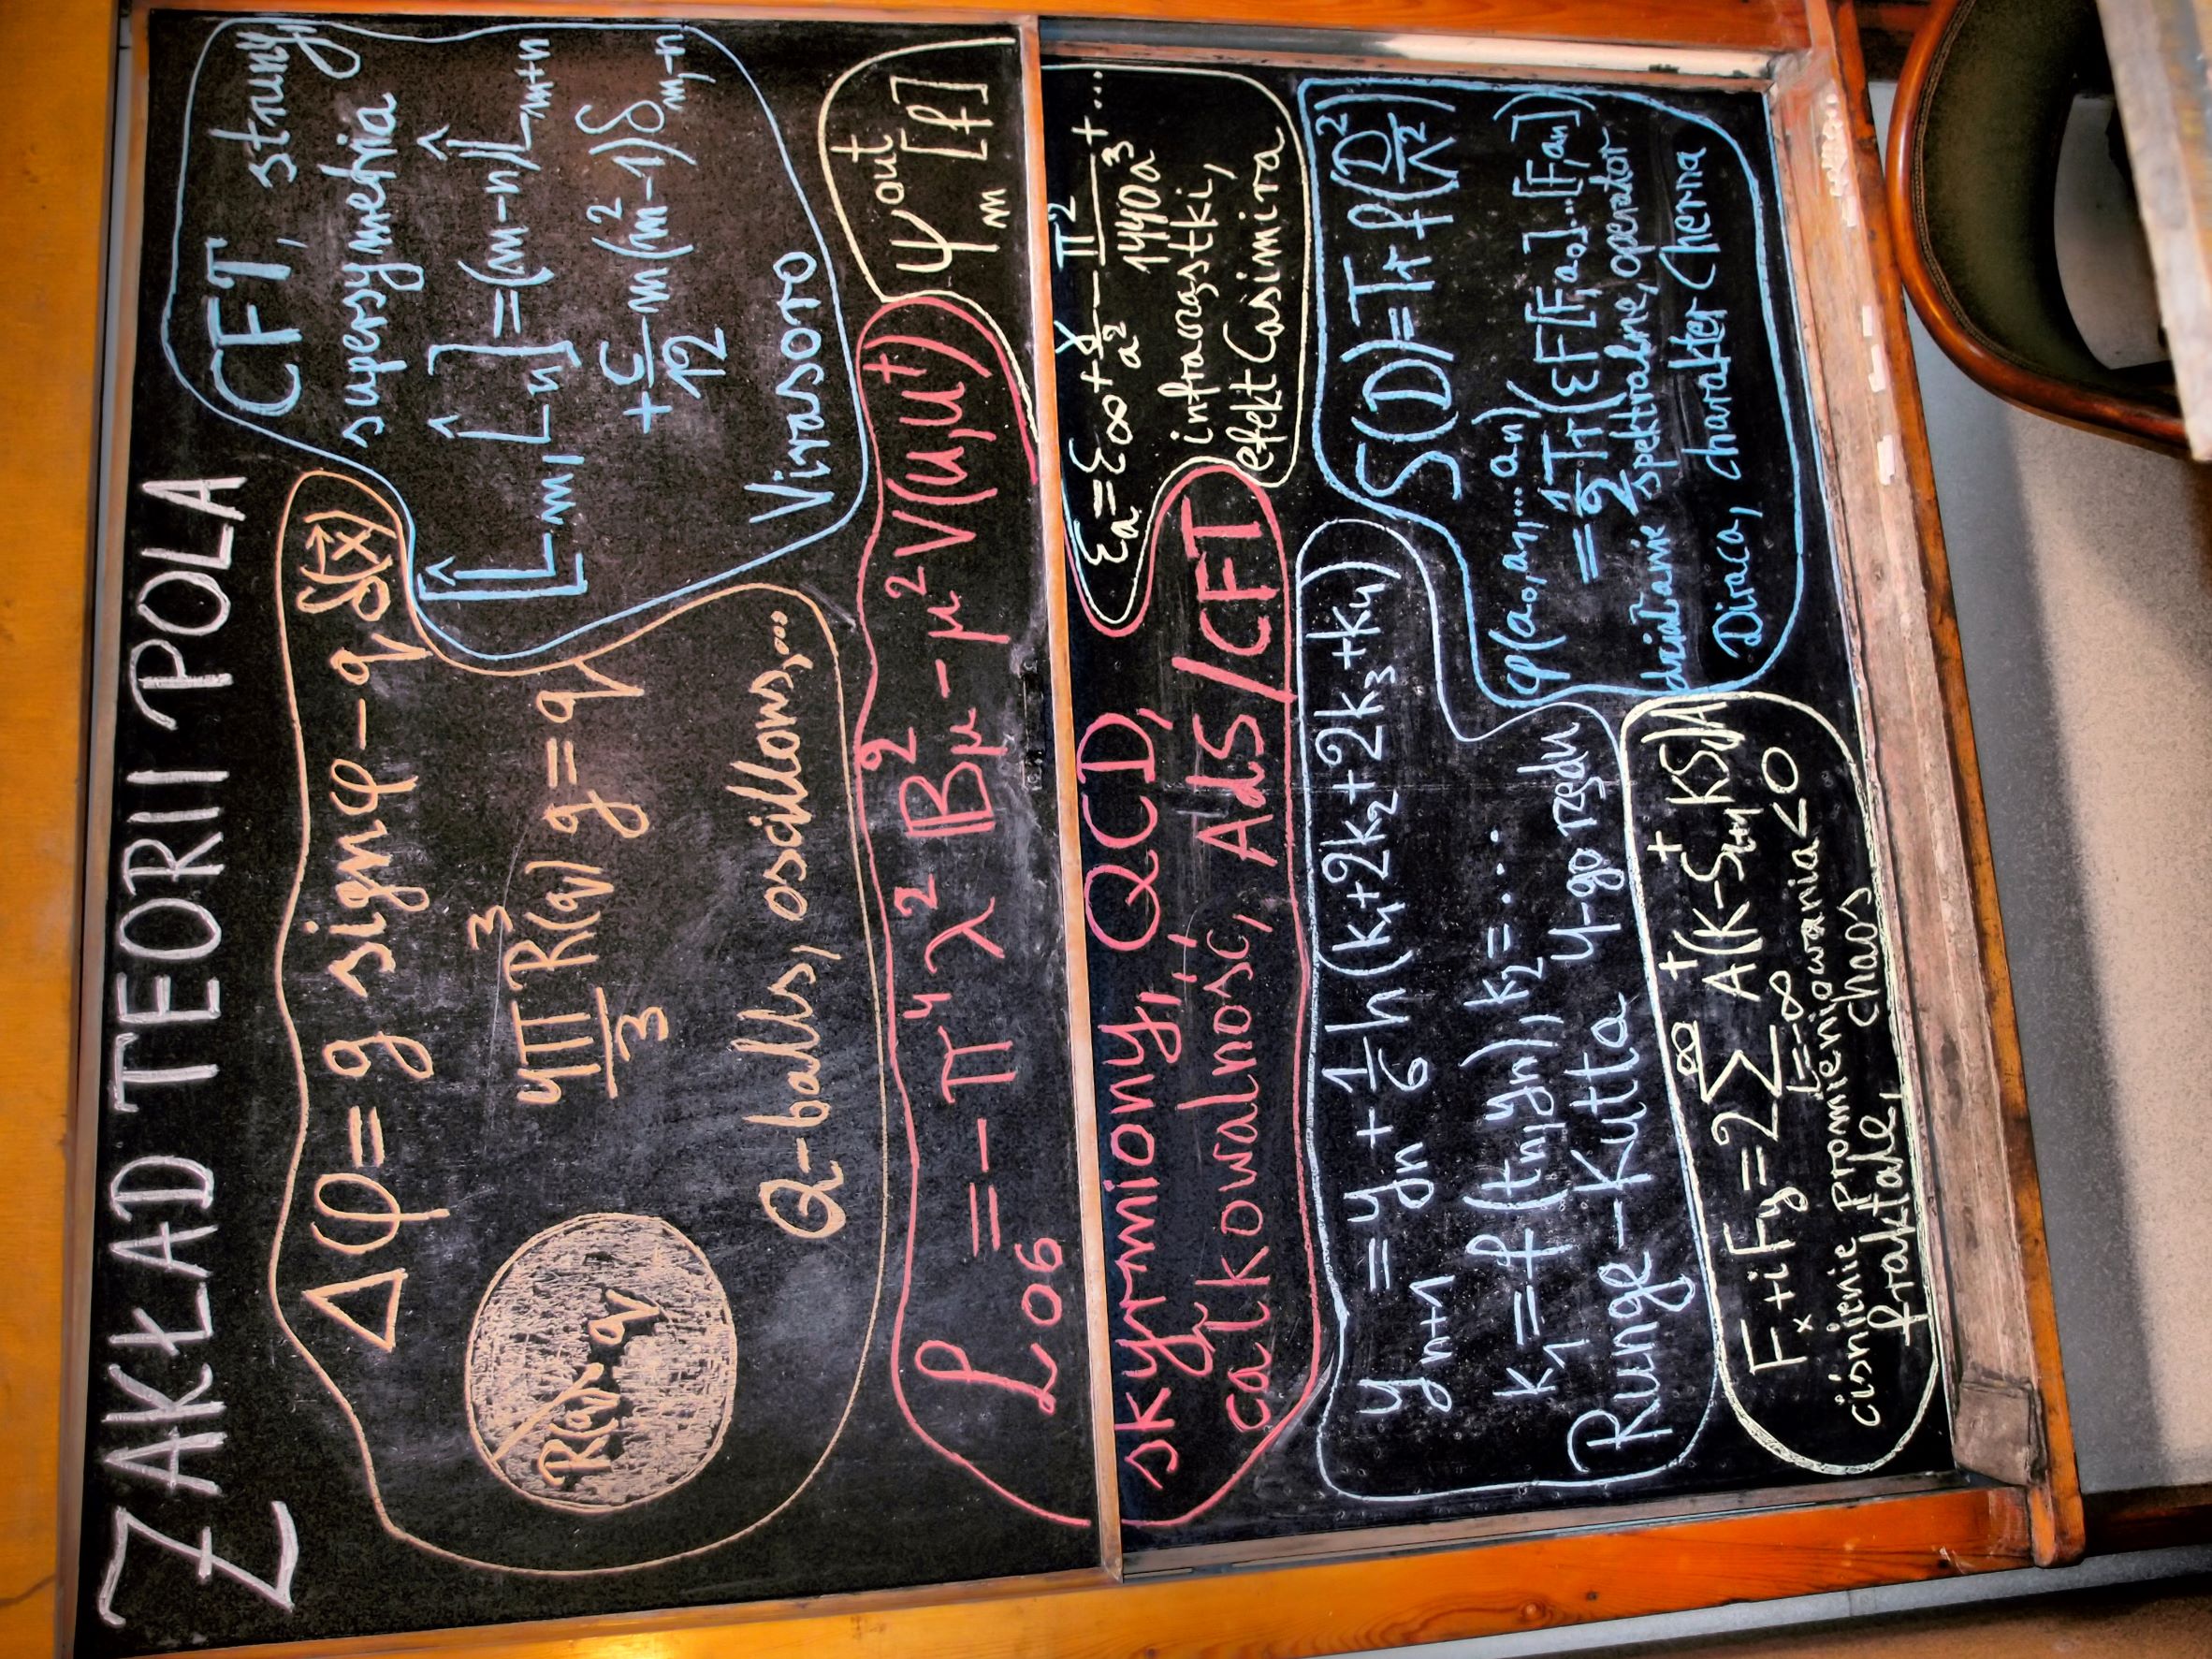 ZAKŁAD TEORII POLA
Δφ = g signφ - q δ(x⃗)
4π/3 R³(q) g = q
R(q) q
Q-balls, oscillons,...
CFT, struny
supersymetria
[L̂_m, L̂_n] = (m-n) L̂_m+n
+ c/12 m(m²-1) δ_m,-n
Virasoro
ℒ_06 = -π⁴λ² B²_μ - μ² V(u,u†)
ψ_m^out [f]
skyrmiony, QCD,
całkowalność, AdS/CFT
ε_a = ε_∞ + γ/a² - π²/1440a³ + ...
infracząstki,
efekt Casimira
y_n+1 = y_n + 1/6 h (k₁+2k₂+2k₃+k₄)
k₁ = f(t_n, y_n), k₂ = ...
Runge-Kutta 4-go rzędu
S(D) = Tr f(D²/Λ²)
φ(a₀,a₁,...a_n)
= 1/2 Tr(εF[F,a₀]...[F,a_n]
działanie spektralne, operator
Diraca, charakter Cherna
F_x + iF_y = 2 Σ_{L=-∞}^{∞} A⁺(K-S⁺_L+1 K S_L)A
ciśnienie promieniowania < 0
fraktale, chaos